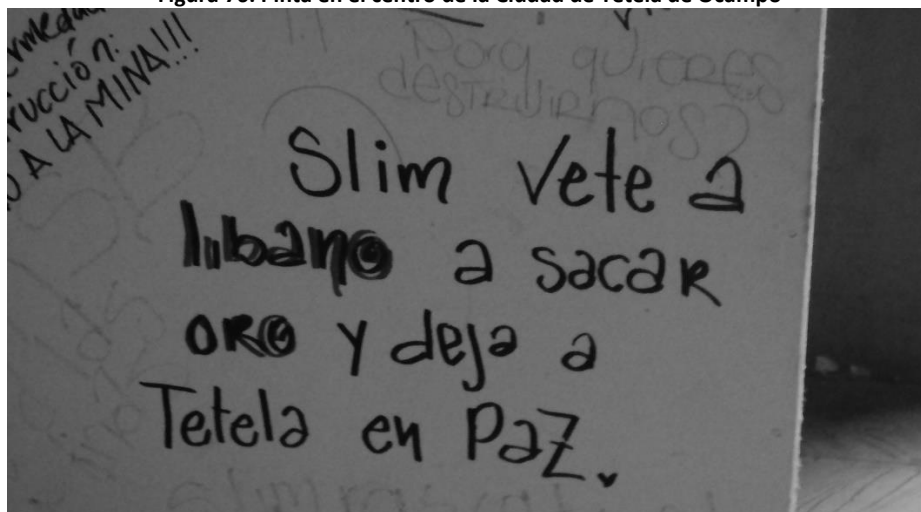 en el centro de la Ciudad de Tetela de Ocampo
rucción:
A LA MINA!!!
Porq quieres
destruirnos?
Slim Vete a
libano a sacar
oro y deja a
Tetela en Paz.